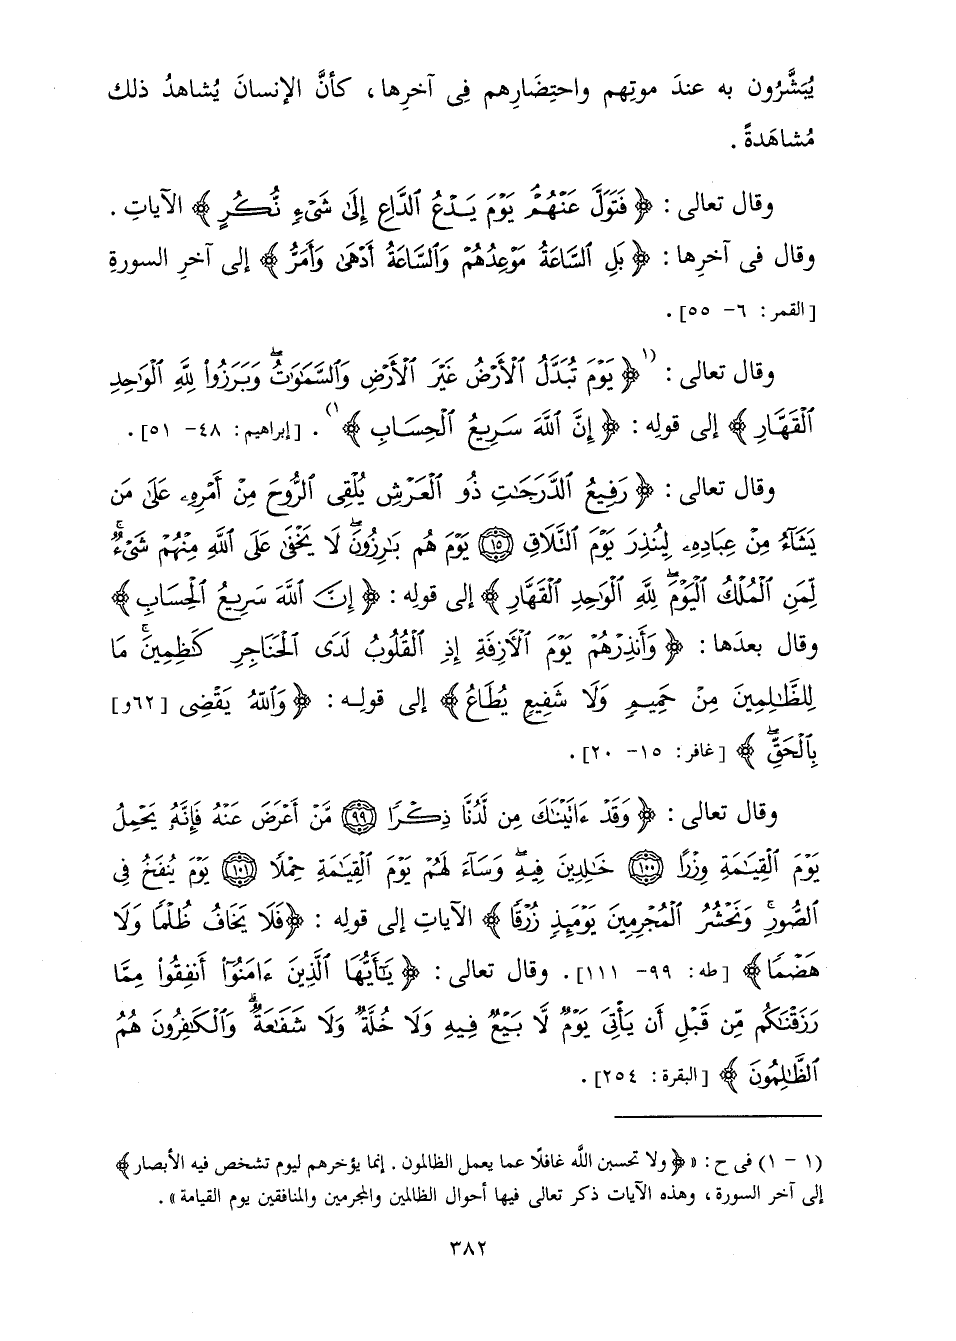 يُبَشَّرُون به عندَ موتِهم واحتِضَارِهم فِى آخرِها ، كأنَّ الإنسانَ يُشاهدُ ذلك
مُشاهَدةً .
وقال تعالى : ﴿ فَتَوَلَّ عَنْهُمْ يَوْمَ يَدْعُ ٱلدَّاعِ إِلَىٰ شَىْءٍ نُّكُرٍ ﴾ الآياتِ .
وقال فى آخرِها : ﴿ بَلِ ٱلسَّاعَةُ مَوْعِدُهُمْ وَٱلسَّاعَةُ أَدْهَىٰ وَأَمَرُّ ﴾ إلى آخرِ السورةِ
[القمر : ٦- ٥٥] .
وقال تعالى : (١﴿ يَوْمَ تُبَدَّلُ ٱلْأَرْضُ غَيْرَ ٱلْأَرْضِ وَٱلسَّمَٰوَٰتُ ۖ وَبَرَزُوا۟ لِلَّهِ ٱلْوَٰحِدِ
ٱلْقَهَّارِ ﴾ إلى قولِه : ﴿ إِنَّ ٱللَّهَ سَرِيعُ ٱلْحِسَابِ ﴾١) . [إبراهيم : ٤٨- ٥١] .
وقال تعالى : ﴿ رَفِيعُ ٱلدَّرَجَٰتِ ذُو ٱلْعَرْشِ يُلْقِى ٱلرُّوحَ مِنْ أَمْرِهِۦ عَلَىٰ مَن
يَشَآءُ مِنْ عِبَادِهِۦ لِيُنذِرَ يَوْمَ ٱلتَّلَاقِ ۝١٥ يَوْمَ هُم بَٰرِزُونَ ۖ لَا يَخْفَىٰ عَلَى ٱللَّهِ مِنْهُمْ شَىْءٌ ۚ
لِّمَنِ ٱلْمُلْكُ ٱلْيَوْمَ ۖ لِلَّهِ ٱلْوَٰحِدِ ٱلْقَهَّارِ ﴾ إلى قولِه : ﴿ إِنَّ ٱللَّهَ سَرِيعُ ٱلْحِسَابِ ﴾
وقال بعدَها : ﴿ وَأَنذِرْهُمْ يَوْمَ ٱلْآزِفَةِ إِذِ ٱلْقُلُوبُ لَدَى ٱلْحَنَاجِرِ كَٰظِمِينَ ۚ مَا
لِلظَّٰلِمِينَ مِنْ حَمِيمٍ وَلَا شَفِيعٍ يُطَاعُ ﴾ إلى قولِه : ﴿ وَٱللَّهُ يَقْضِى [٦٢و]
بِٱلْحَقِّ ۖ ﴾ [غافر : ١٥- ٢٠] .
وقال تعالى : ﴿ وَقَدْ ءَاتَيْنَٰكَ مِن لَّدُنَّا ذِكْرًا ۝٩٩ مَّنْ أَعْرَضَ عَنْهُ فَإِنَّهُۥ يَحْمِلُ
يَوْمَ ٱلْقِيَٰمَةِ وِزْرًا ۝١٠٠ خَٰلِدِينَ فِيهِ ۖ وَسَآءَ لَهُمْ يَوْمَ ٱلْقِيَٰمَةِ حِمْلًا ۝١٠١ يَوْمَ يُنفَخُ فِى
ٱلصُّورِ ۚ وَنَحْشُرُ ٱلْمُجْرِمِينَ يَوْمَئِذٍ زُرْقًا ﴾ الآياتِ إلى قولِه : ﴿فَلَا يَخَافُ ظُلْمًا وَلَا
هَضْمًا﴾ [طه : ٩٩- ١١١] . وقال تعالى : ﴿ يَٰٓأَيُّهَا ٱلَّذِينَ ءَامَنُوٓا۟ أَنفِقُوا۟ مِمَّا
رَزَقْنَٰكُم مِّن قَبْلِ أَن يَأْتِىَ يَوْمٌ لَّا بَيْعٌ فِيهِ وَلَا خُلَّةٌ وَلَا شَفَٰعَةٌ ۗ وَٱلْكَٰفِرُونَ هُمُ
ٱلظَّٰلِمُونَ ﴾ [البقرة : ٢٥٤] .
(١ - ١) فى ح : « ﴿ ولا تحسبن اللَّه غافلًا عما يعمل الظالمون . إنما يؤخرهم ليوم تشخص فيه الأبصار ﴾
إلى آخر السورة ، وهذه الآيات ذكر تعالى فيها أحوال الظالمين والمجرمين والمنافقين يوم القيامة » .
٣٨٢